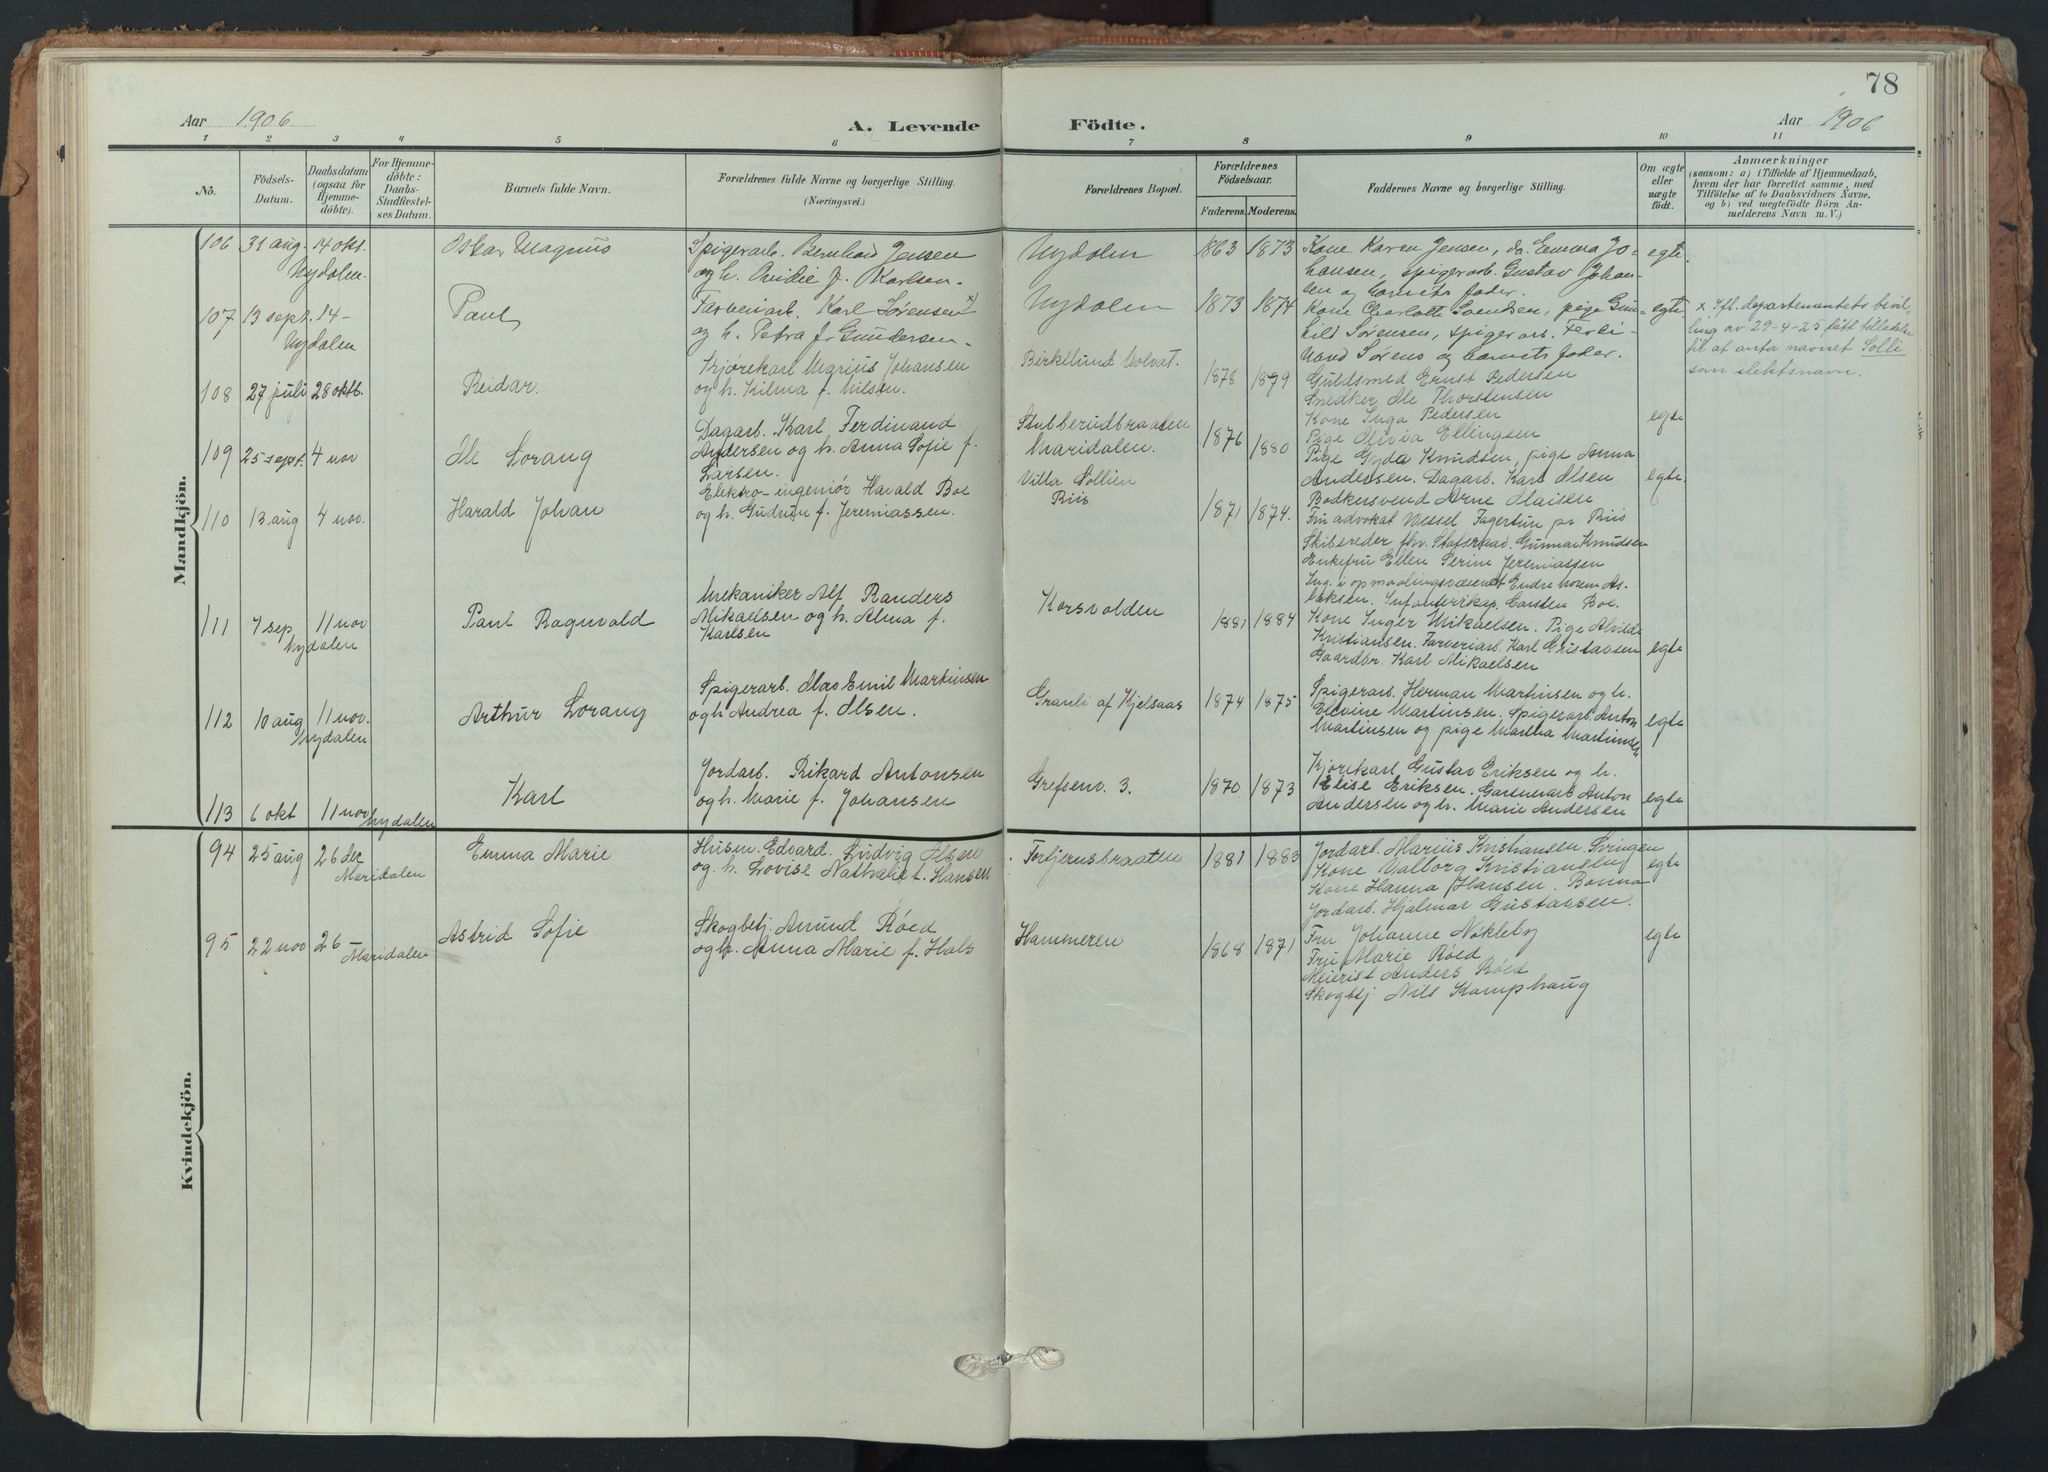 78
Aar 1906
A. Levende Födte.
Aar 1906
1 2 3 4 5 6 7 8 9 10 11
No.
Födsels-
Datum.
Daabsdatum
(ogsaa for
Hjemme-
döbte).
For Hjemme-
döbte:
Daabs-
Stadfæstel-
ses Datum.
Barnets fulde Navn.
Forældrenes fulde Navne og borgerlige Stilling.
(Næringsvei.)
Forældrenes Bopæl.
Forældrenes
Födselsaar.
Faderens. Moderens.
Faddernes Navne og borgerlige Stilling.
Om ægte
eller
uægte
födt.
Anmærkninger
(saasom: a) i Tilfælde af Hjemmedaab,
hvem der har forrettet samme, med
Tilföielse af to Daabsvidners Navne.
og b) ved uægtefödte Börn An-
melderens Navn m. V.)
Mandkjön.
106 31 aug. 14 okt.
Nydalen.
Oskar Magnus
Spigerarb. Bernhard Jensen
og h. f. Karlsen.
Nydalen
1863 1873
Kone Karen Jensen, do. Emma Jo-
hansen, spigerarb. Gustav Johan-
sen og barnets fader.
egte.
107 13 sept. 14-
Nydalen
Paul
Farveriarb. Karl Sørensen x)
og h. Petra f. Gundersen.
Nydalen
1873 1874
Kone Charlotte Svendsen, pige Gun-
hild Sørensen, spigerarb. Ferdi-
nand Sørens og barnets fader.
egte.
x Ifl. departementets bevil-
ling av 29-4-25 fått tillatelse
til at anta navnet Solli
som slektsnavn.
108 27 juli 28 oktb.
Reidar.
Kjørekarl Marius Johansen
og h. Hilma f. Nilsen.
Birkelund Holvat.
1878 1879
Guldsmed Ernst Pedersen
Snedker Ole Thorstensen
Kone Inga Pedersen
Pige Olivia Ellingsen
egte
109 25 sept. 4 nov
Ole Lorang
Dagarb. Karl Ferdinand
Andersen og h. Anna Sofie f.
Larsen.
Stubberudbraaten
Maridalen.
1876 1880
Pige Gyda Knudsen, pige Anna
Andersen. Dagarb. Karl Olsen
Bødkersvend Arne Olaisen
egte.
110 13 aug 4 nov.
Harald Johan
Elektro-ingeniør Harald Boe
og h. Gudrun f. Jeremiassen.
Villa Sollien
Riis
1871 1874.
Fru advokat Wessel Fagertun pr Riis
Skibsreder fhv. Statsraad. Gunnar Knudsen
Enkefru Ellen Serine Jeremiassen
Ing. i opmaalingsvæsenet Endre As-
laksen. Infanterikap. Carsten Boe.
111 7 sep 11 nov
Nydalen
Paul Ragnvald
Mekaniker Alf Randers
Mikaelsen og h. Alma f.
Karlsen
Korsvolden
1881 1884
Kone Inger Mikaelsen. Pige Alvilde
Kristiansen. Farveriarb. Karl Gustavsen
Gaardbr. Karl Mikaelsen
egte
112 10 aug 11 nov.
Nydalen
Arthur Lorang
Spigerarb. Olav Emil Martinsen
og h Andrea f. Olsen.
Granli af Kjelsaas
1874 1875
Spigerarb. Herman Martinsen og h.
Elevine Martinsen. Spigerarb. Anton
Martinsen og pige Martha Martinsen
egte
113 6 okt 11 nov Nydalen
Karl
Jordarb. Rikard Antonsen
og h. Marie f. Johansen
Grefsenv. 3.
1870 1873
Kjørekarl Gustav Eriksen og h.
Elise Eriksen. Gartnerarb Anton
Andersen og h. Marie Andersen
egte
Kvindekjön.
94 25 aug 26 dec
Maridalen
Emma Marie
Husm. Edvard Ludvig Olsen
og. h. Lovise Nathalie f. Hansen
Tortjernsbraaten
1881 1883
Jordarb. Marius Kristiansen. Svingen
Kone Valborg Kristiansen
Kone Hanna Hansen. Bonna
Jordarb. Hjalmar Gustavsen.
egte
95 22 nov 26
Maridalen
Astrid Sofie
Skogbetj. Amund Røed
og h. Anna Marie f. Hals
Hammeren
1868 1871
Fru Johanne Nökleby
Fru Marie Røed
Meierist Anders Røed
Skogbtj Nils Kamphaug
egte